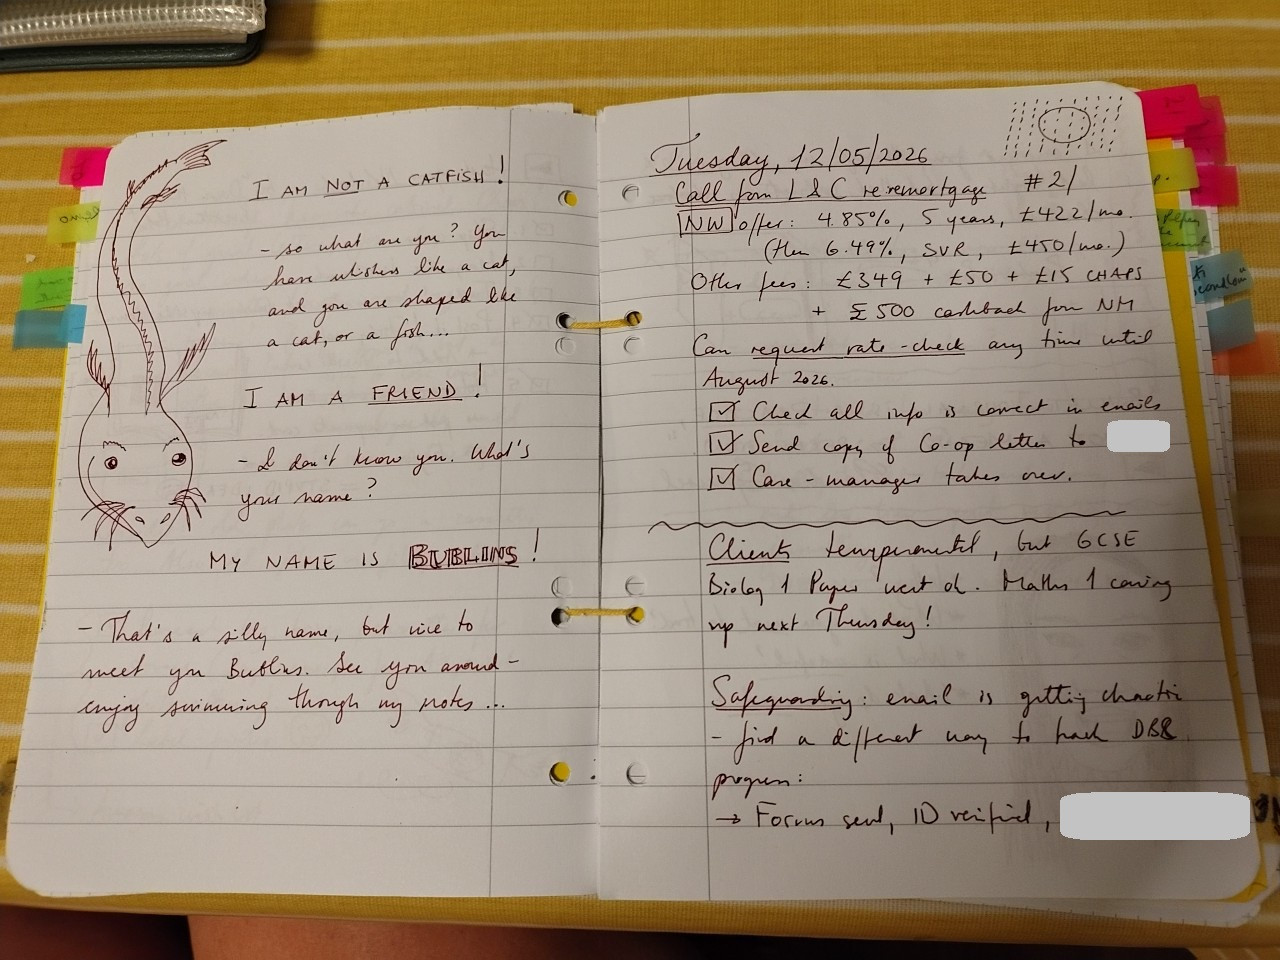 I AM NOT A CATFISH!
- so what are you? You
have whiskers like a cat,
and you are shaped like
a cat, or a fish...
I AM A FRIEND!
- I don't know you. What's
your name?
MY NAME IS BUBLINS!
- That's a silly name, but nice to
meet you Bublins. See you around -
enjoy swimming through my notes...
Tuesday, 12/05/2026
Call from L&C re:remortgage #2/
NW offer: 4.85%, 5 years, £422/mo.
(then 6.49%, SVR, £450/mo.)
Other fees: £349 + £50 + £15 CHAPS
+ £500 cashback from NM
Can request rate-check any time until
August 2026.
Check all info is correct in emails
Send copy of Co-op letter to
Case-manager takes over.
Clients temperamental, but GCSE
Biology 1 Paper went ok. Maths 1 coming
up next Thursday!
Safeguarding: email is getting chaotic
- find a different way to track DBS
progress:
→ Forms sent, ID verified,